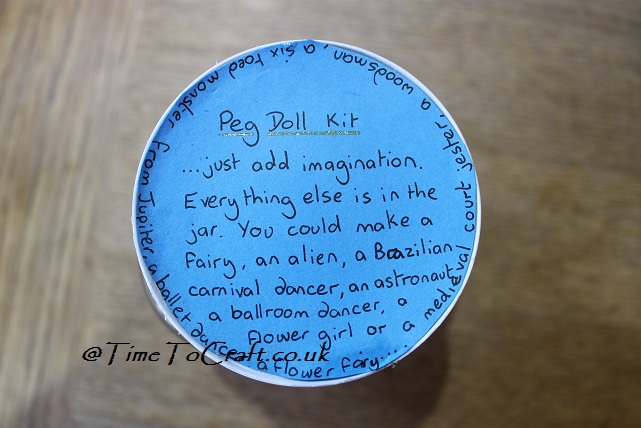 Peg Doll Kit
...just add imagination.
Everything else is in the
jar. You could make a
fairy, an alien, a Brazilian
carnival dancer, an astronaut
a ballroom dancer, a
flower girl or a medieval court jester, a woodsman, a six toed monster from Jupiter, a ballet dancer a flower fairy....
@TimeToCraft.co.uk